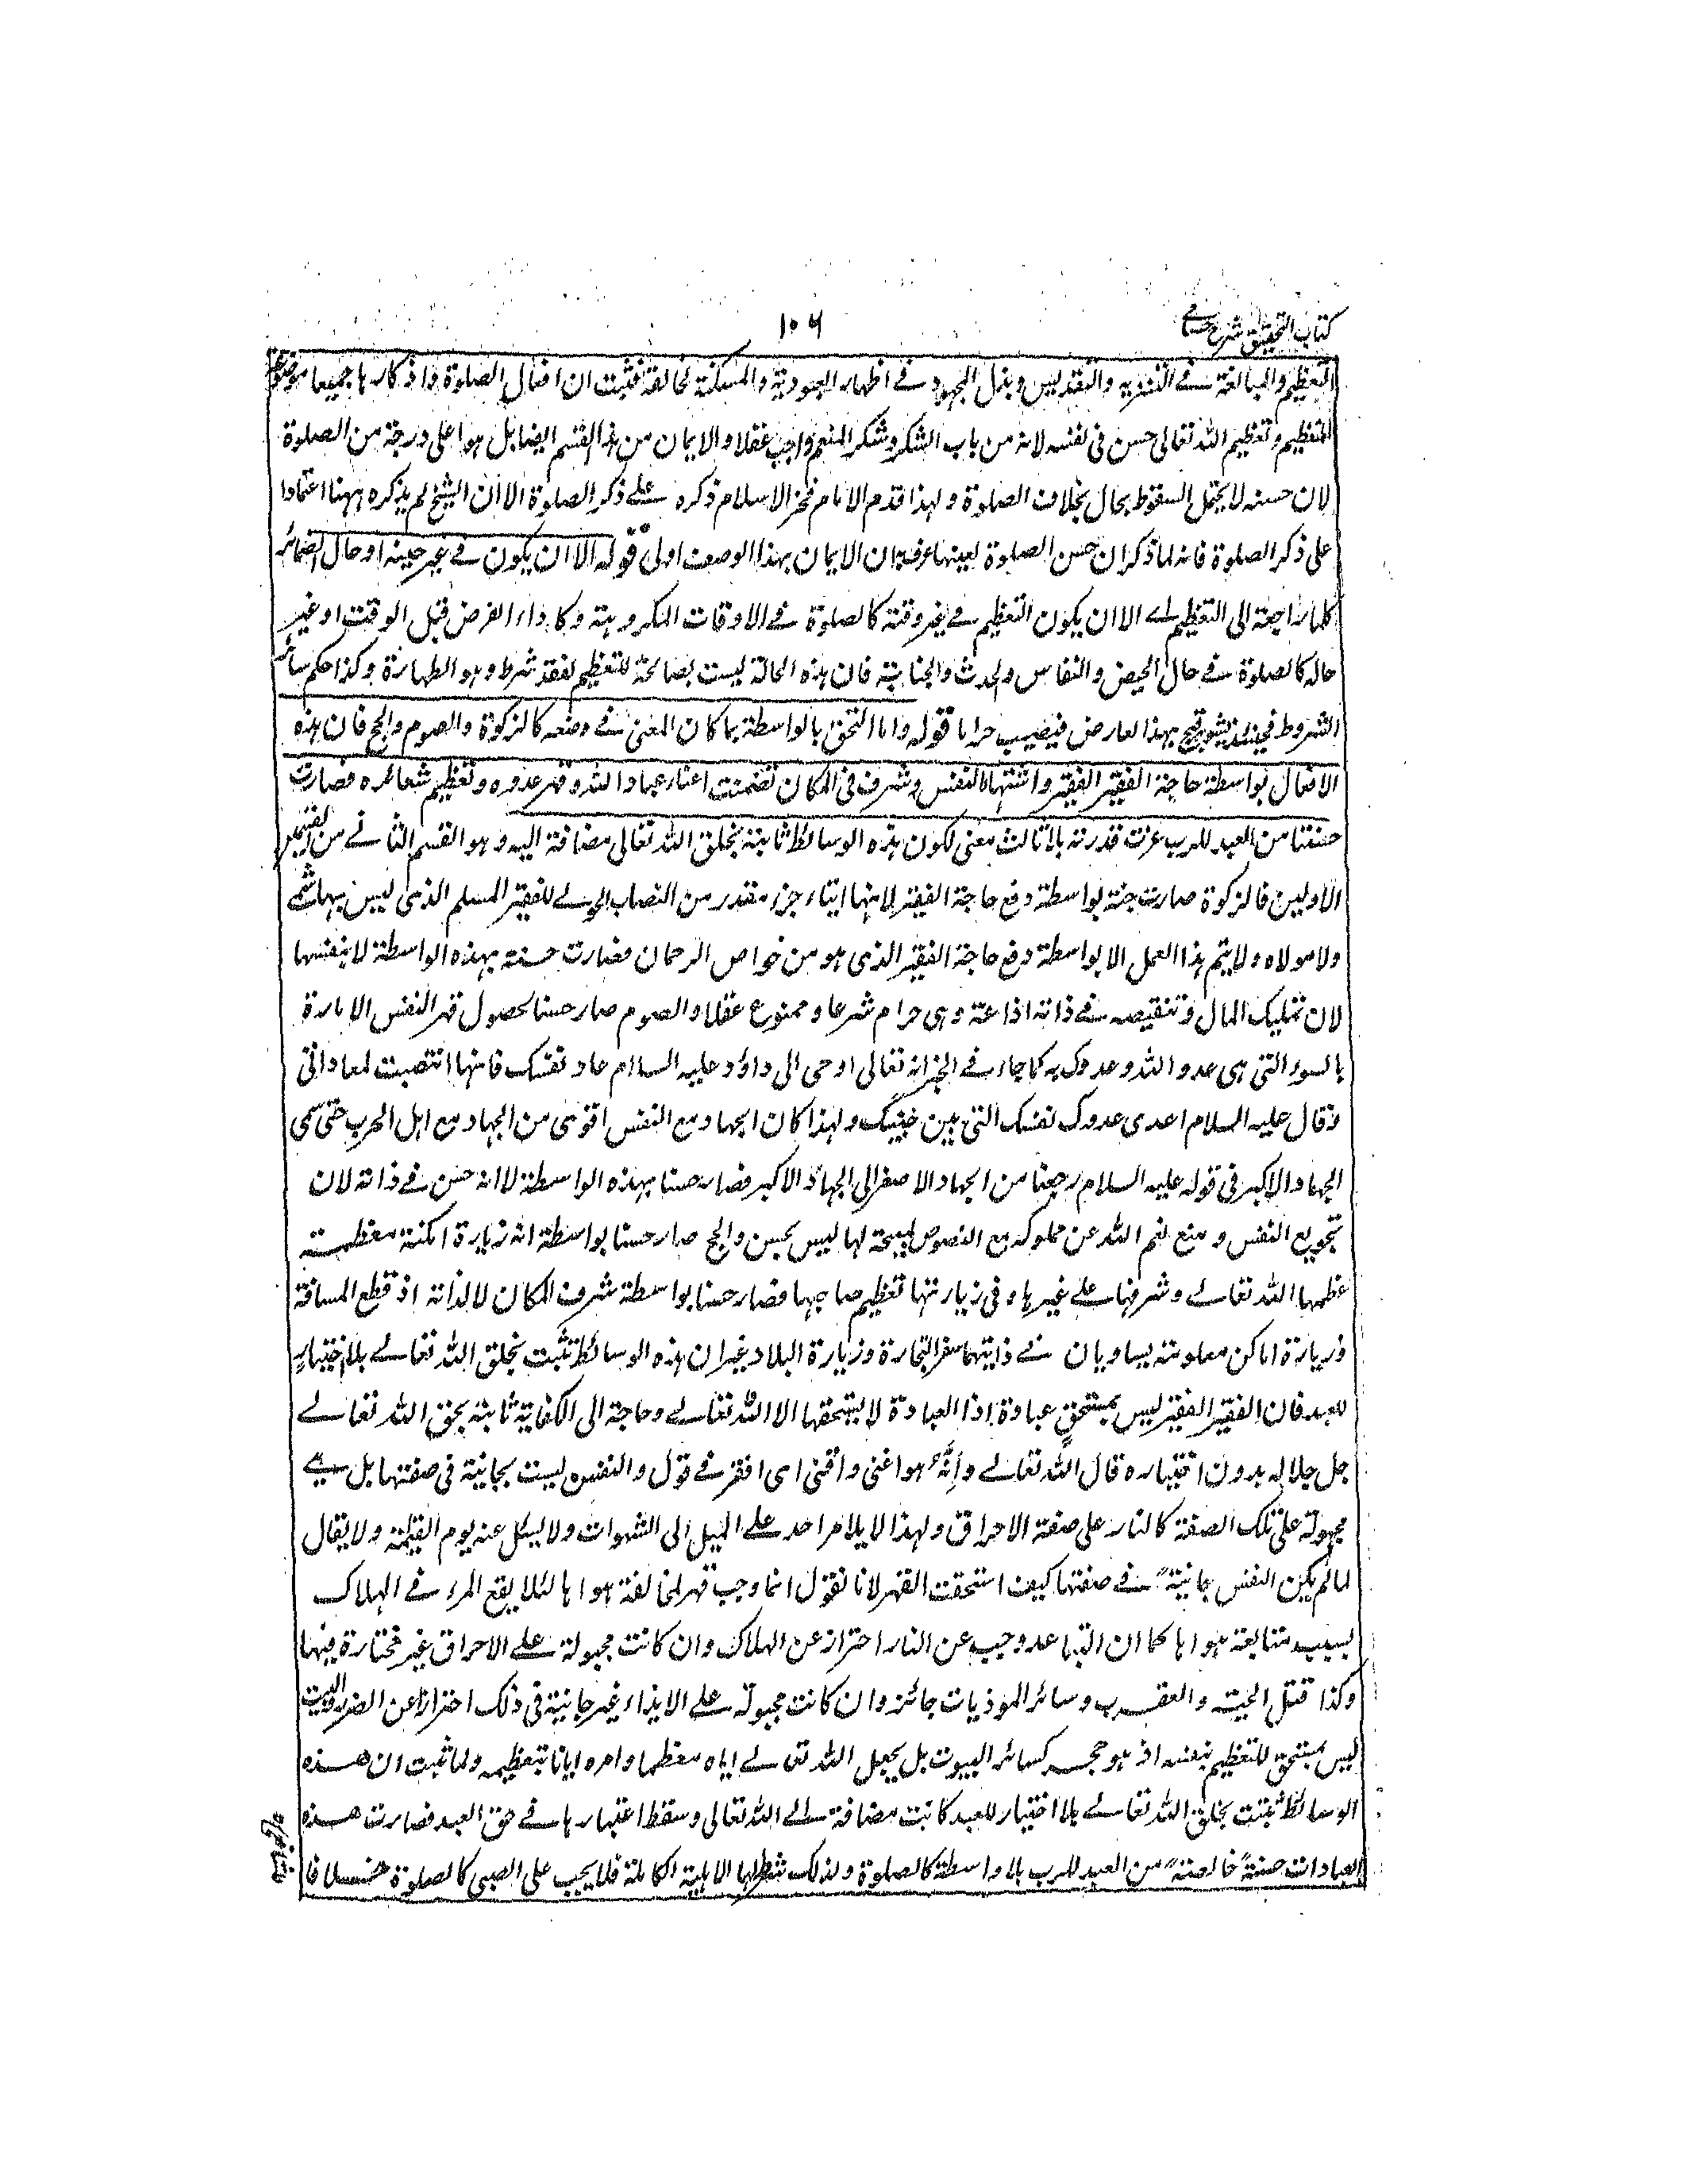 كتاب التحقيق شرح حسامى
١٠٦
التعظيم والمبالغة فى التنزيه والتقديس وبذل المجهود فى اظهار العبودية والمسكنة لخالقه فثبت ان افعال الصلوة واذكارها جميعا موضوعة
للتعظيم وتعظيم الله تعالى حسن فى نفسه لانه من باب الشكر وشكر المنعم واجب عقلا والايمان من هذا القسم ايضا بل هو اعلى درجة من الصلوة
لان حسنه لا يحتمل السقوط بحال بخلاف الصلوة ولهذا قدم الامام فخر الاسلام ذكره على ذكر الصلوة الا ان الشيخ لم يذكره ههنا اعتمادا
على ذكر الصلوة فانه لما ذكر ان حسن الصلوة لعينها عرف ان الايمان بهذا الوصف اولى قوله الا ان يكون فى غير حينه او حاله الضمائر
كلها راجعة الى التعظيم اى الا ان يكون التعظيم فى غير وقته كالصلوة فى الاوقات المكروهة وكاداء الفرض قبل الوقت او غير
حاله كالصلوة فى حال الحيض والنفاس والحدث والجنابة فان هذه الحالة ليست بصالحة للتعظيم لفقد شرط وهو الطهارة وكذا حكم سائر
الشروط فحينئذ يشوبه قبح بهذا العارض فيصير حراما قوله واما التحق بالواسطة بما كان المعنى فى وضعه كالزكوة والصوم والحج فان هذه
الافعال بواسطة حاجة الفقير الفقير واشتهاء النفس وشرف فى المكان تضمنت اغناء عباد الله وقهر عدوه وتعظيم شعائره فصارت
حسنة من العبد للرب عزت قدرته بلا ثالث معنى لكون هذه الوسائط ثابتة بخلق الله تعالى مضافة اليه وهو القسم الثانى من القسمين
الاولين فالزكوة صارت حسنة بواسطة دفع حاجة الفقير لانها ايتاء جزء مقدر من النصاب الحولى للفقير المسلم الذى ليس بهاشمى
ولا مولاه ولا يتم هذا العمل الا بواسطة دفع حاجة الفقير الذى هو من خواص الرحمان فصارت حسنة بهذه الواسطة لا بنفسها
لان تمليك المال وتنقيصه فى ذاته اضاعة وهى حرام شرعا وممنوع عقلا والصوم صار حسنا لحصول قهر النفس الامارة
بالسوء التى هى عدو الله وعدوك به كما جاء فى الخبر انه تعالى اوحى الى داؤد عليه السلام عاد نفسك فانها انتصبت لمعاداتى
وقال عليه السلام اعدى عدوك نفسك التى بين جنبيك ولهذا كان الجهاد مع النفس اقوى من الجهاد مع اهل الحرب حتى سمى
الجهاد الاكبر فى قوله عليه السلام رجعنا من الجهاد الاصغر الى الجهاد الاكبر فصار حسنا بهذه الواسطة لا انه حسن فى ذاته لان
تجويع النفس ومنع نعم الله عن مملوكه مع النصوص المبيحة لها ليس بحسن والحج صار حسنا بواسطة انه زيارة امكنة معظمة
عظمها الله تعالى وشرفها على غيرها وفى زيارتها تعظيم صاحبها فصار حسنا بواسطة شرف المكان لا لذاته اذ قطع المسافة
وزيارة اماكن معلومة يساويان فى ذاتيهما سفر التجارة وزيارة البلاد غير ان هذه الوسائط تثبت بخلق الله تعالى بلا اختيار
للعبد فان الفقير الفقير ليس بمستحق عبادة اذ العبادة لا يستحقها الا الله تعالى وحاجته الى الكفاية ثابتة بحق الله تعالى
جل جلاله بدون اختياره قال الله تعالى وأنه هو اغنى واقنى اى افقر فى قول والنفس ليست بجانية فى صفتها بل هى
مجبولة على تلك الصفة كالنار على صفة الاحراق ولهذا لا يلام احد على الميل الى الشهوات ولا يسئل عنه يوم القيمة ولا يقال
لما لم يكن النفس جانية فى صفتها كيف استحقت القهر لانا نقول انما وجب قهر لمخالفة هواها لئلا يقع المرء فى الهلاك
بسبب متابعة هواها كما ان التباعد وجب عن النار احترازا عن الهلاك وان كانت مجبولة على الاحراق غير مختارة فيها
وكذا قتل الحية والعقرب وسائر الموذيات جائز وان كانت مجبولة على الايذاء غير جانية فى ذلك احترازا عن الضرر والبيت
ليس بمستحق للتعظيم بنفسه اذ هو حجر كسائر البيوت بل بجعل الله تعالى اياه معظما وامره ايانا بتعظيمه ولما ثبت ان هذه
الوسائط ثبتت بخلق الله تعالى بلا اختيار للعبد كانت مضافة الى الله تعالى وسقط اعتبارها فى حق العبد فصارت هذه
العبادات حسنة خالصة من العبد للرب بلا واسطة كالصلوة ولذلك شرط لها الاهلية الكاملة فلا يجب على الصبى كالصلوة خلافا